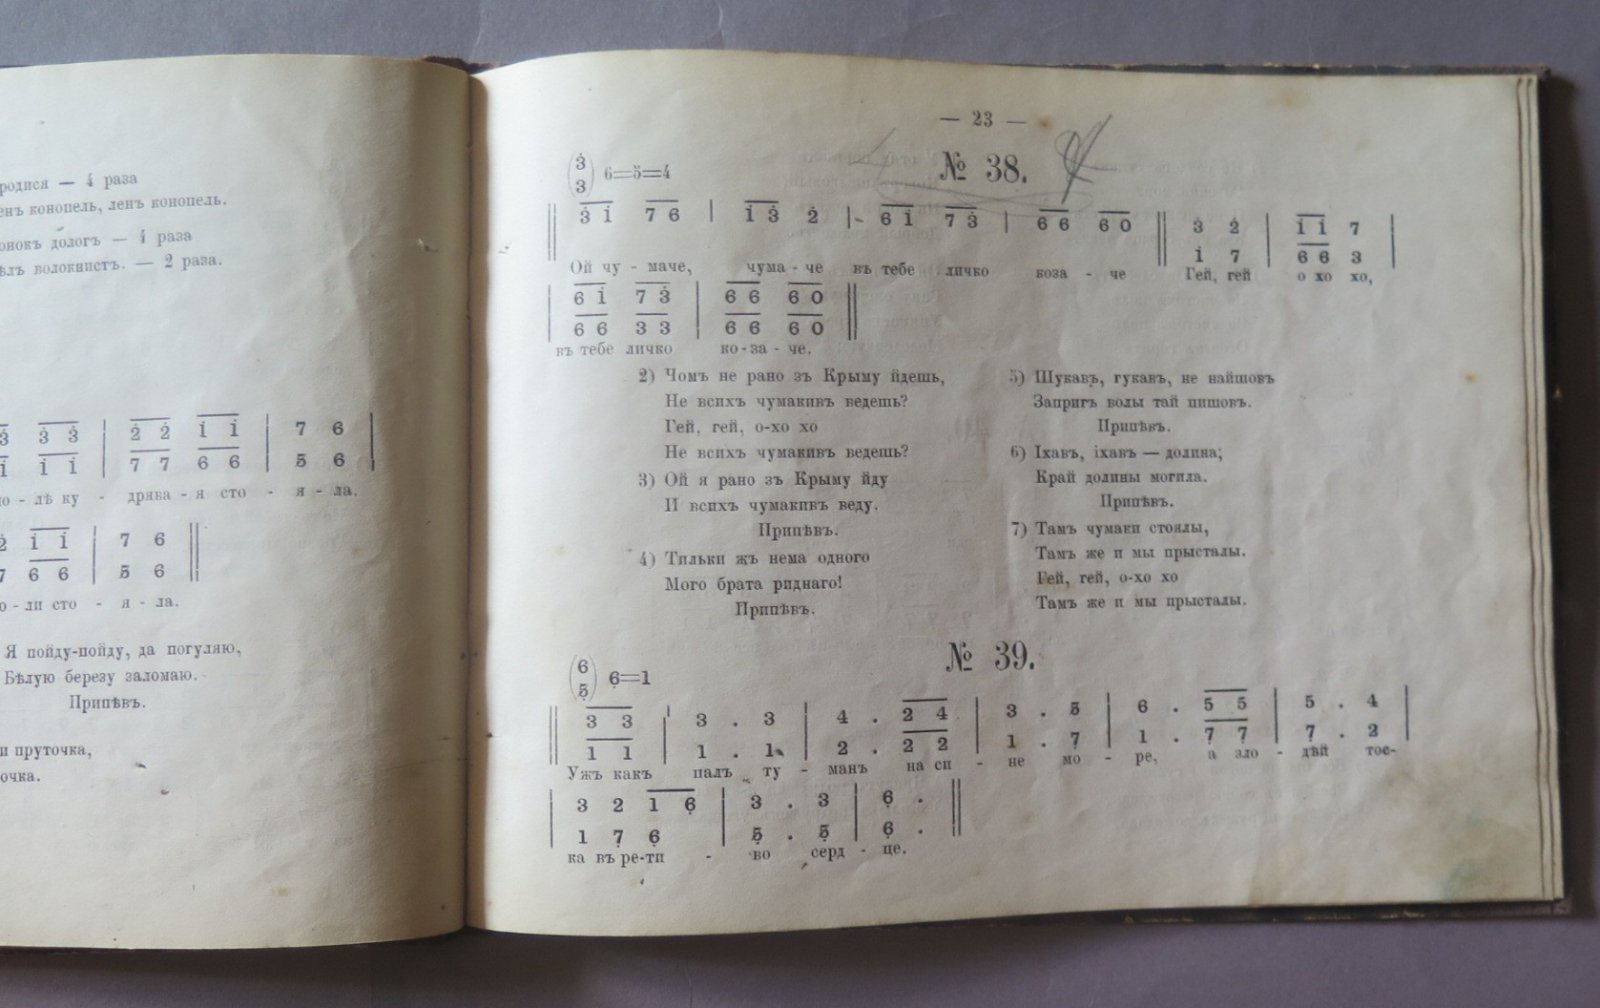 родися — 4 раза
конопель, ленъ конопель.
дологъ — 4 раза
волокнистъ. — 2 раза.
3 3̇ 3̇ | 2̇ 2̇ 1̇ 1̇ | 7 6 |
1̇ 1̇ 1̇ | 7 7 6 6 | 5 6
лѣ ку - дрява - я сто - я - ла.
2̇ 1̇ 1̇ | 7 6 ||
7 6 6 | 5 6
ли сто - я - ла.
Я пойду-пойду, да погуляю,
Бѣлую березу заломаю.
Припѣвъ.
и пруточка,
— 23 —
№ 38.
(3̇ 3) 6=5=4
|| 3̇ 1̇ 7 6 | 1̇ 3̇ 2̇ | 6 1̇ 7 3̇ | 6 6 6 0 || 3̇ 2̇ | 1̇ 1̇ 7 |
1̇ 7 | 6 6 3
Ой чу - маче, чума - че въ тебе личко коза - че Гей, гей о хо хо,
| 6 1̇ 7 3̇ | 6 6 6 0 ||
6 6 3 3 | 6 6 6 0
въ тебе личко ко-за - че.
2) Чомъ не рано зъ Крыму йдешь,
Не всихъ чумакивъ ведешь?
Гей, гей, о-хо хо
Не всихъ чумакивъ ведешь?
3) Ой я рано зъ Крыму йду
И всихъ чумакивъ веду.
Припѣвъ.
4) Тильки жъ нема одного
Мого брата риднаго!
Припѣвъ.
5) Шукавъ, гукавъ, не найшовъ
Запригъ волы тай пишовъ.
Припѣвъ.
6) Іхавъ, іхавъ — долина;
Край долины могила.
Припѣвъ.
7) Тамъ чумаки стоялы,
Тамъ же и мы прысталы.
Гей, гей, о-хо хо
Тамъ же и мы прысталы.
№ 39.
(6 5̣) 6̣=1
|| 3 3 | 3 . 3 | 4 . 2 4 | 3 . 5 | 6 . 5 5 | 5 . 4 |
1 1 | 1 . 1 | 2 . 2 2 | 1 . 7̣ | 1 . 7̣ 7̣ | 7̣ . 2
Ужъ какъ палъ ту - манъ на си - не мо - ре, а зло - дѣй тос-
| 3 2 1 6̣ | 3 . 3 | 6̣ . ||
1 7̣ 6̣ | 5̣ . 5̣ | 6̣ .
ка въ ре-ти - во серд - це.